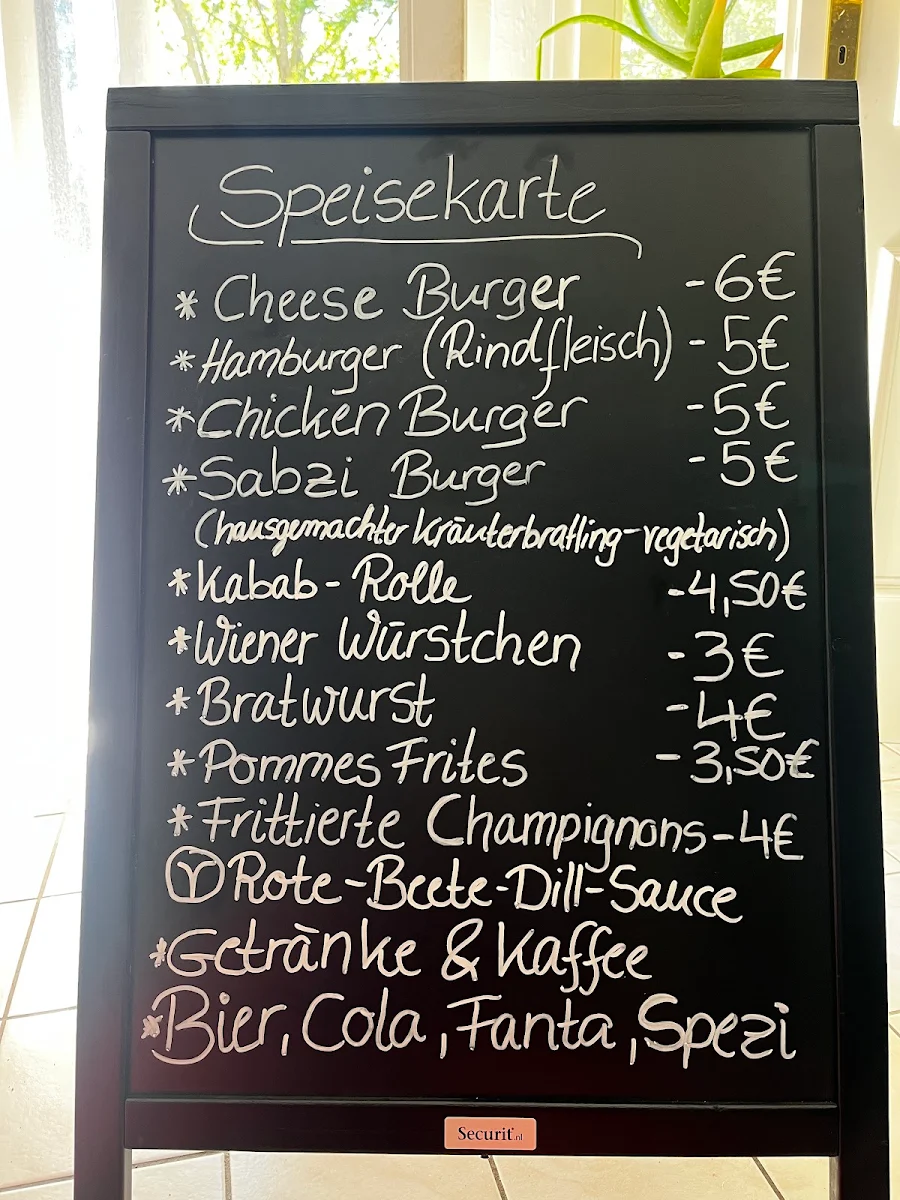 Speisekarte
* Cheese Burger -6€
* Hamburger (Rindfleisch) -5€
* Chicken Burger -5€
* Sabzi Burger -5€
(hausgemachter Kräuterbratling-vegetarisch)
* Kabab-Rolle -4,50€
* Wiener Würstchen -3€
* Bratwurst -4€
* Pommes Frites -3,50€
* Frittierte Champignons -4€
Rote-Beete-Dill-Sauce
* Getränke & Kaffee
* Bier, Cola, Fanta, Spezi
Securit.nl